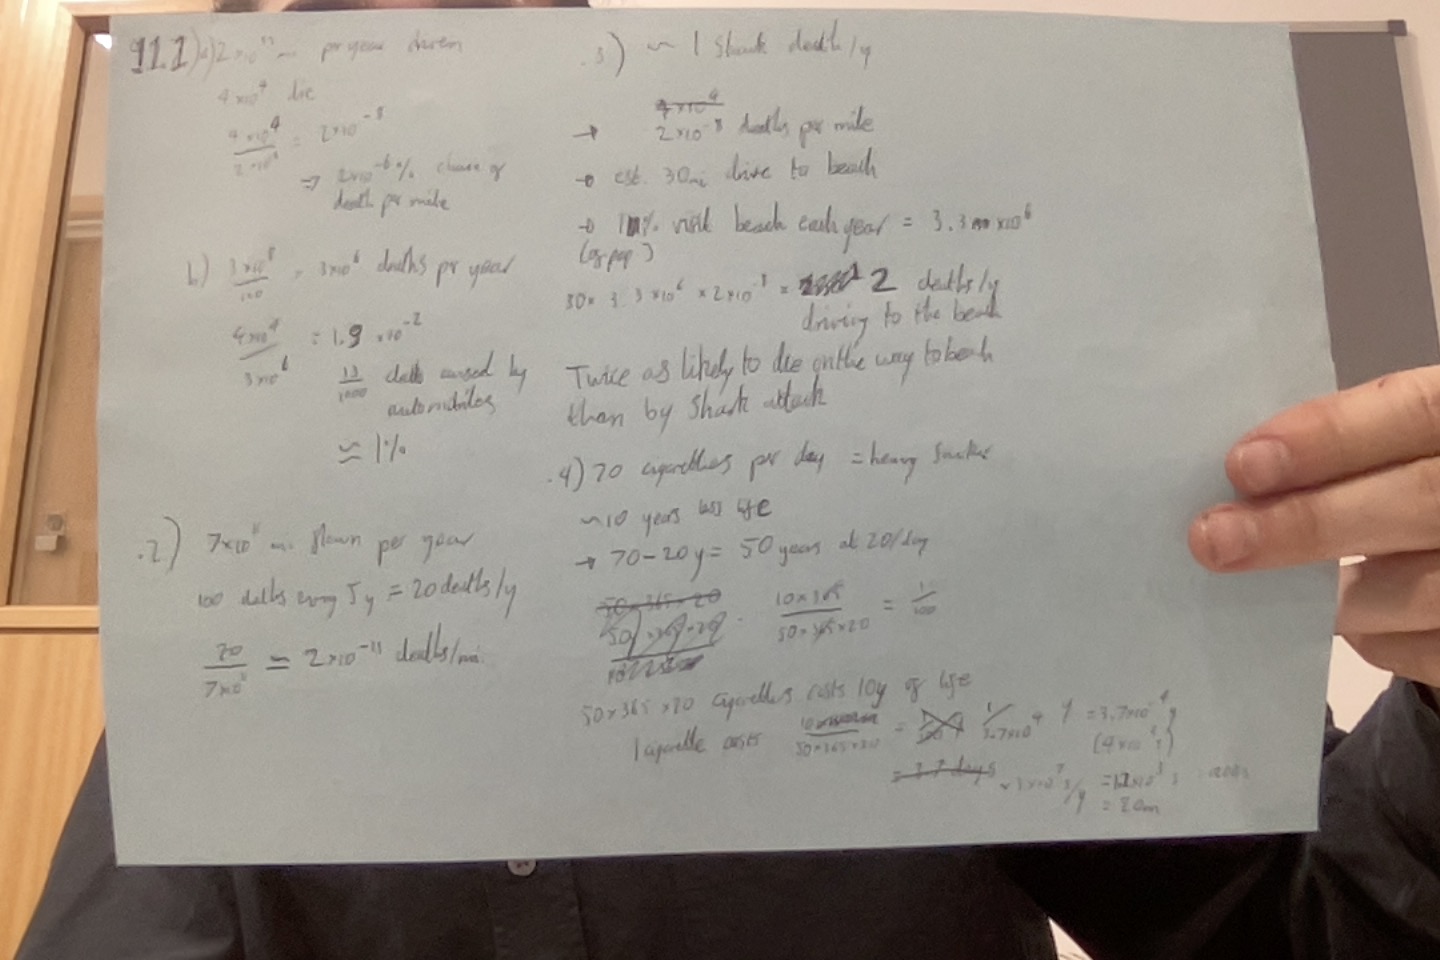 11.1) a) 2×10¹² mi per year driven
4×10⁴ die
4×10⁴ / 2×10¹² = 2×10⁻⁸
⇒ 2×10⁻⁶% chance of
death per mile
b) 3×10⁸ / 100 = 3×10⁶ deaths per year
4×10⁴ / 3×10⁶ = 1.3 ×10⁻²
13/1000 deaths caused by
automobiles
≈ 1%
.2) 7×10¹¹ mi flown per year
100 deaths every 5y = 20 deaths/y
20 / 7×10¹¹ ≃ 2×10⁻¹¹ deaths/mi
.3) ~ 1 Shark death/y
4×10⁴
→ 2×10⁻⁸ deaths per mile
→ est. 30mi drive to beach
→ 1% visit beach each year = 3.3 ×10⁶
(of pop)
30 × 3.3×10⁶ × 2×10⁻⁸ = 2 deaths/y
driving to the beach
Twice as likely to die on the way to beach
than by Shark attack
.4) 20 cigarettes per day = heavy smoker
~10 years less life
→ 70-20y = 50 years at 20/day
50×365×20
10×365 / 50×365×20 = 1/100
50×365×20 cigarettes costs 10y of life
1 cigarette costs 10 / 50×365×20 = 1/3.7×10⁴ y = 3.7×10⁻⁴ y
= 3.7 days × 3×10⁷ s/y = 12×10³ s
= 20m